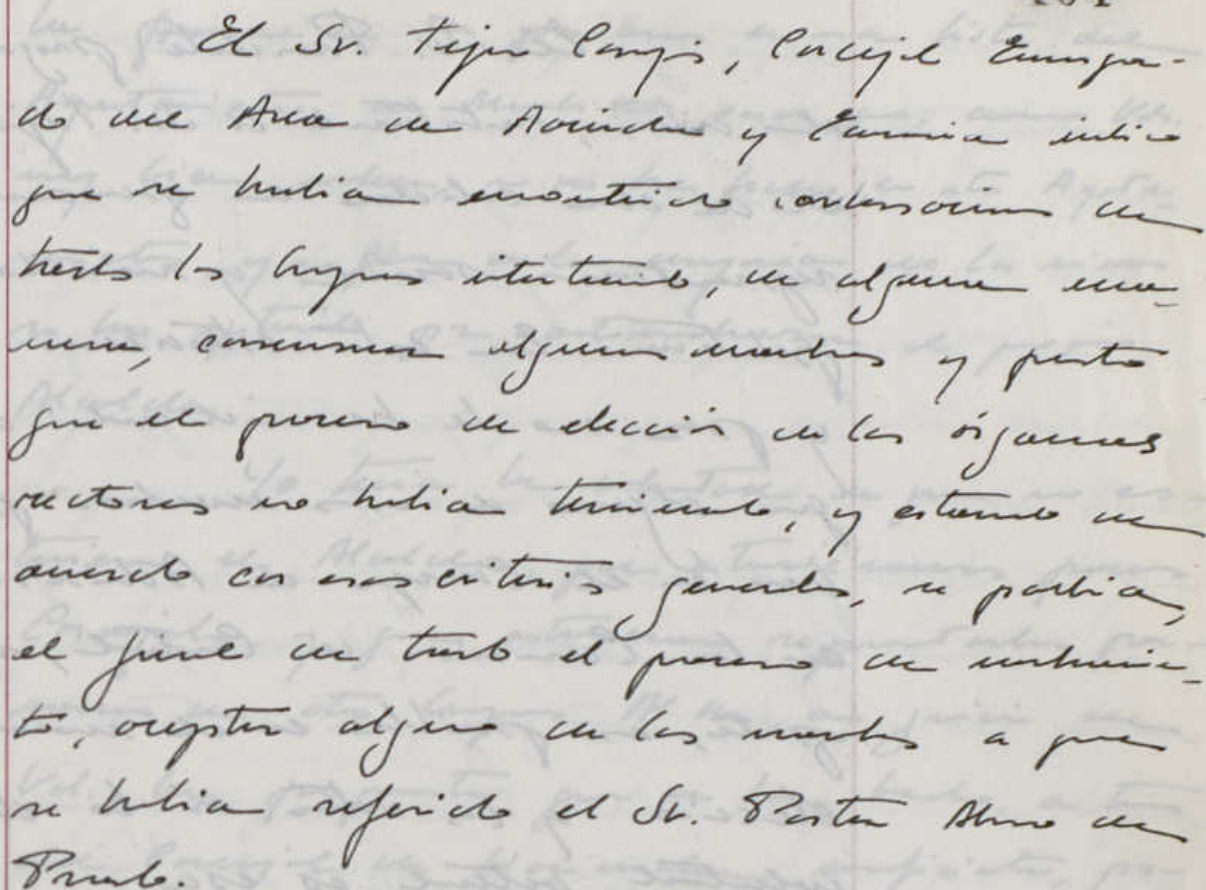 El Sr. Tejer , Concejal Encarga-
do del Area de Hacienda y Economía indicó
que se habia encontrado en
todos los intentando, de alguna ma-
nera, consensuar algunos nombres y puesto
que el proceso de elección de los órganos
rectores no habia terminado, y estando de
acuerdo con esos criterios generales, se podrian,
al final de todo el proceso de nombramien-
to, aceptar alguno de los nombres a que
se habia referido el Sr. Pastor de
Prado.